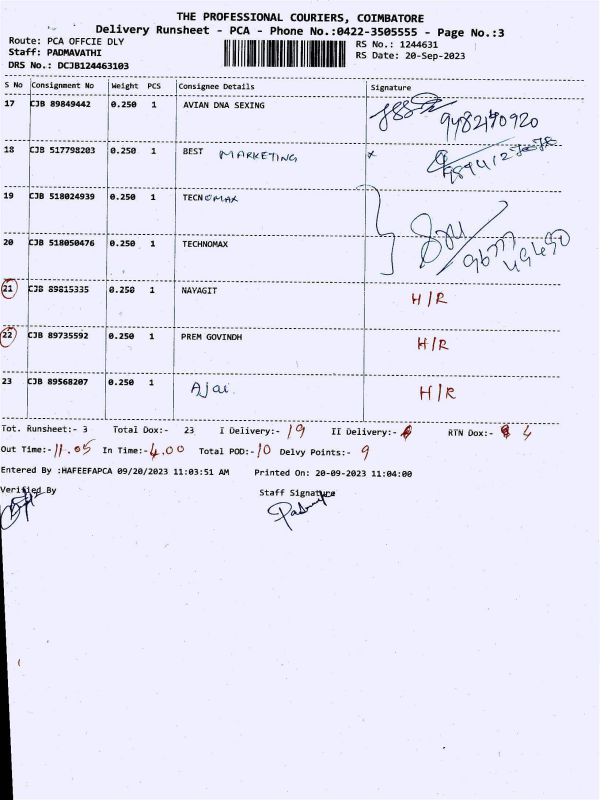 THE PROFESSIONAL COURIERS, COIMBATORE
Delivery Runsheet - PCA - Phone No.:0422-3505555 - Page No.:3
Route: PCA OFFCIE DLY
RS No.: 1244631
Staff: PADMAVATHI
RS Date: 20-Sep-2023
DRS No.: DCJB124463103
S No Consignment No Weight PCS Consignee Details Signature
17 CJB 89849442 0.250 1 AVIAN DNA SEXING
18 CJB 517798203 0.250 1 BEST MARKETING x
19 CJB 518024939 0.250 1 TECNOMAX
20 CJB 518050476 0.250 1 TECHNOMAX
21 CJB 89815335 0.250 1 NAYAGIT H/R
22 CJB 89735592 0.250 1 PREM GOVINDH H/R
23 CJB 89568207 0.250 1 Ajai H/R
Tot. Runsheet:- 3 Total Dox:- 23 I Delivery:- 19 II Delivery:- RTN Dox:- 4
Out Time:- 11.05 In Time:- 4.00 Total POD:- 10 Delvy Points:- 9
Entered By :HAFEEFAPCA 09/20/2023 11:03:51 AM Printed On: 20-09-2023 11:04:00
Verified By Staff Signature